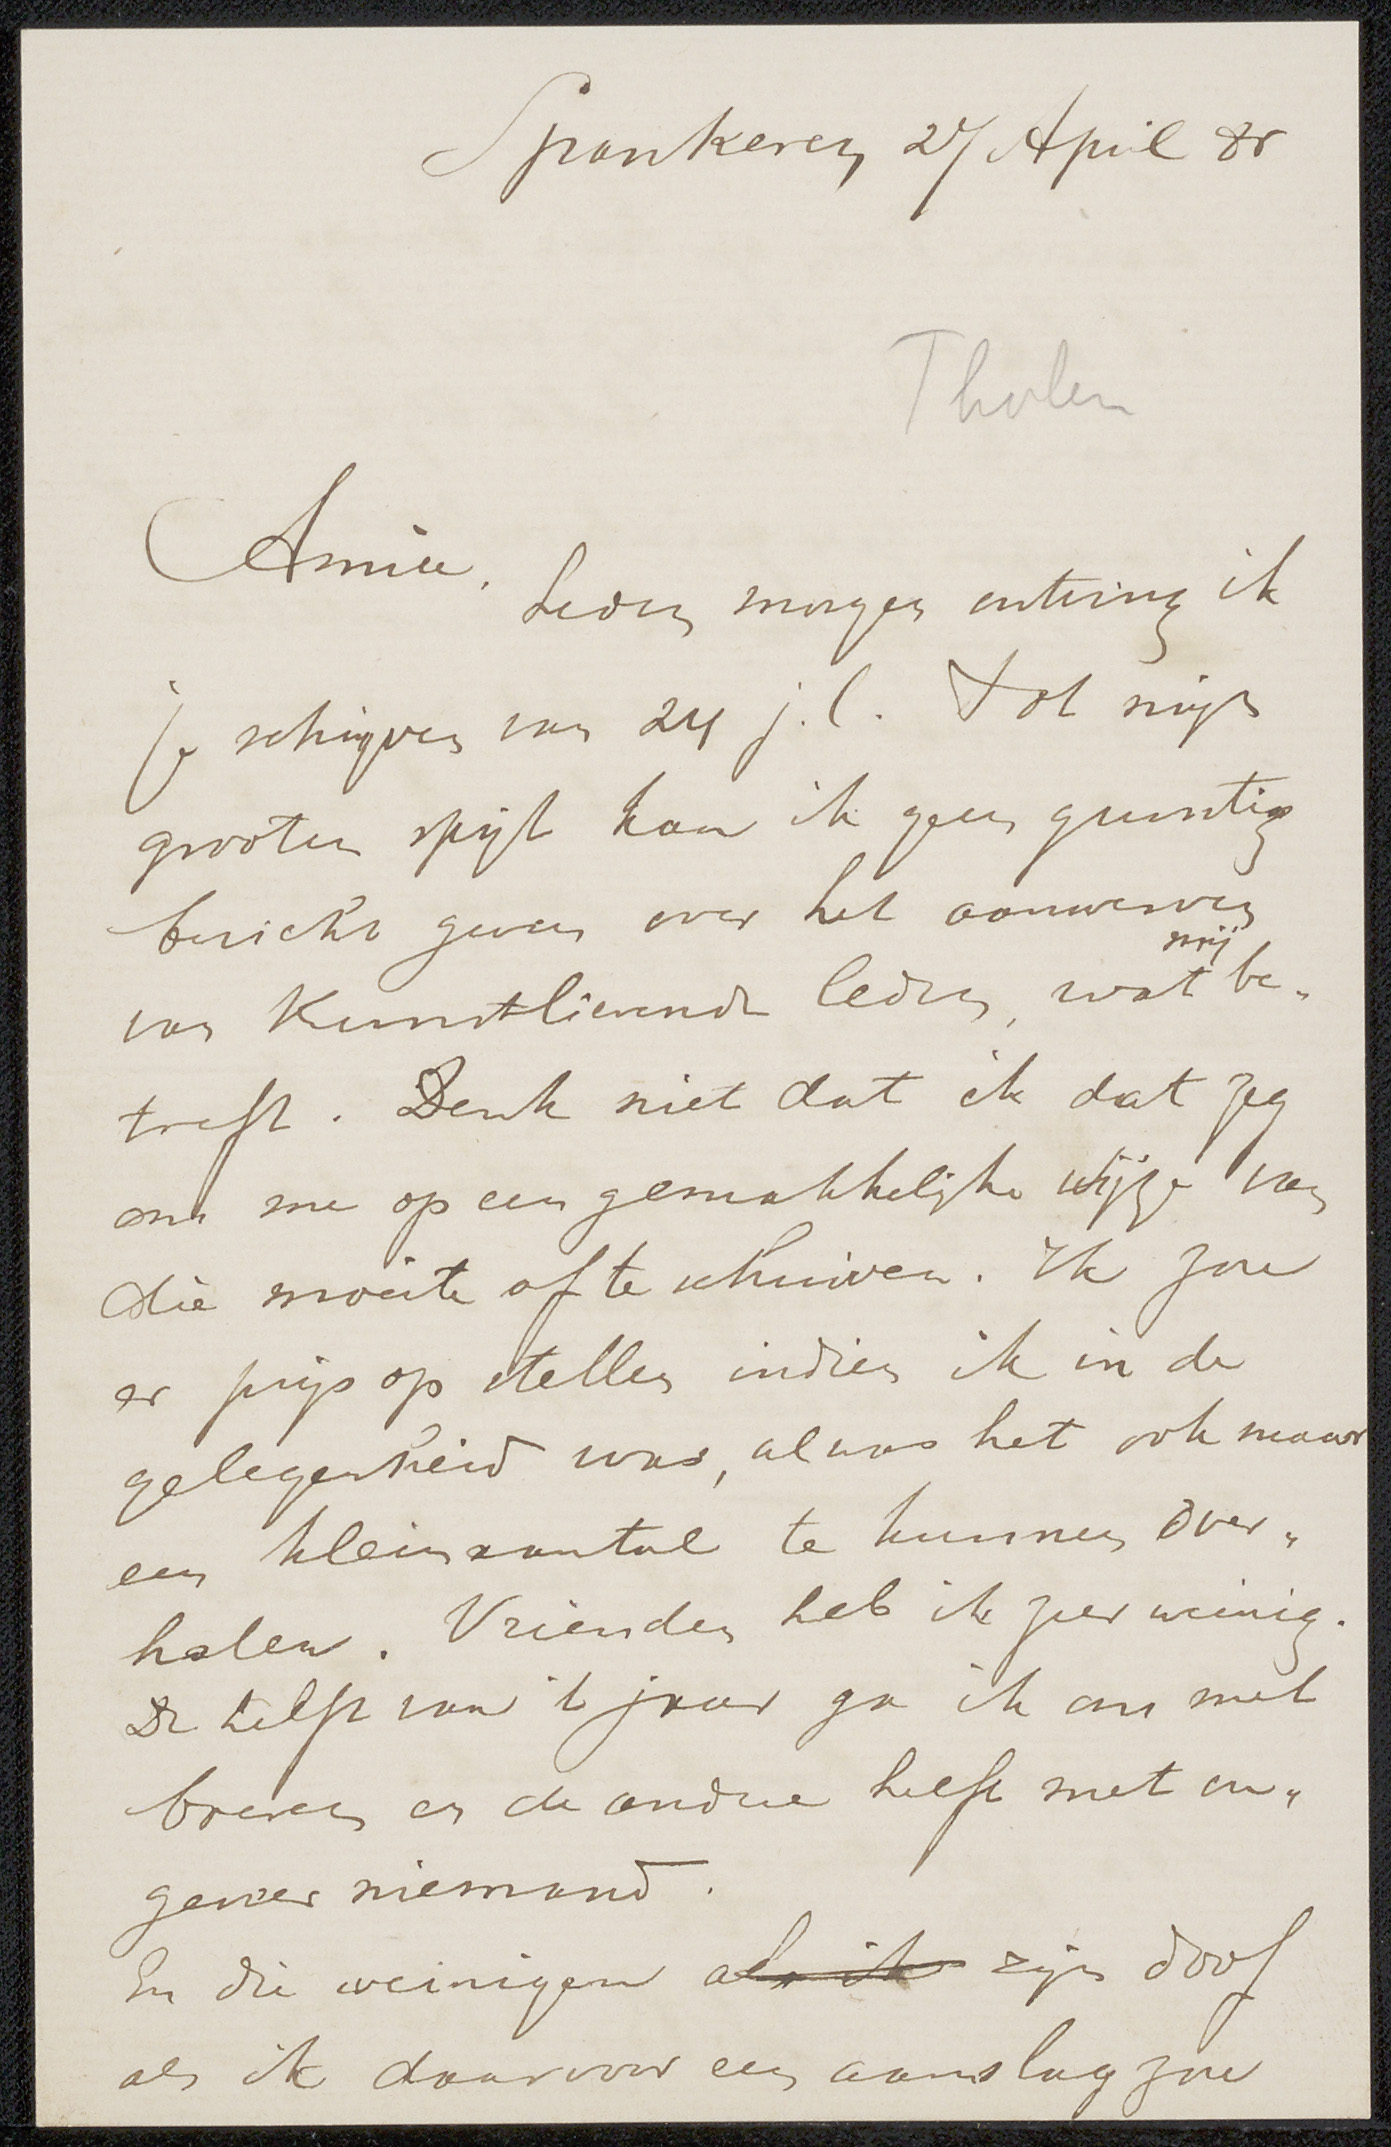 Spankeren 27 April 85
Tholen
Amice.
Heden morgen ontving ik
je schrijven van 24 j.l. Tot mijn
grooten spijt kan ik geen gunstig
bericht geven over het aanwerven
van Kunstlievende leden, wat mij be„
treft. Denk niet dat ik dat zeg
om me op een gemakkelijke wijze van
die moeite af te schuiven. Ik zou
er prijs op stellen indien ik in de
gelegenheid was, al was het ook maar
een klein aantal te kunnen over„
halen. Vrienden heb ik zeer weinig.
De helft van 't jaar ga ik om met
boeren en de andere helft met on„
geveer niemand.
En die weinigen als ik zijn doof
als ik daarvoor een aanslag zou